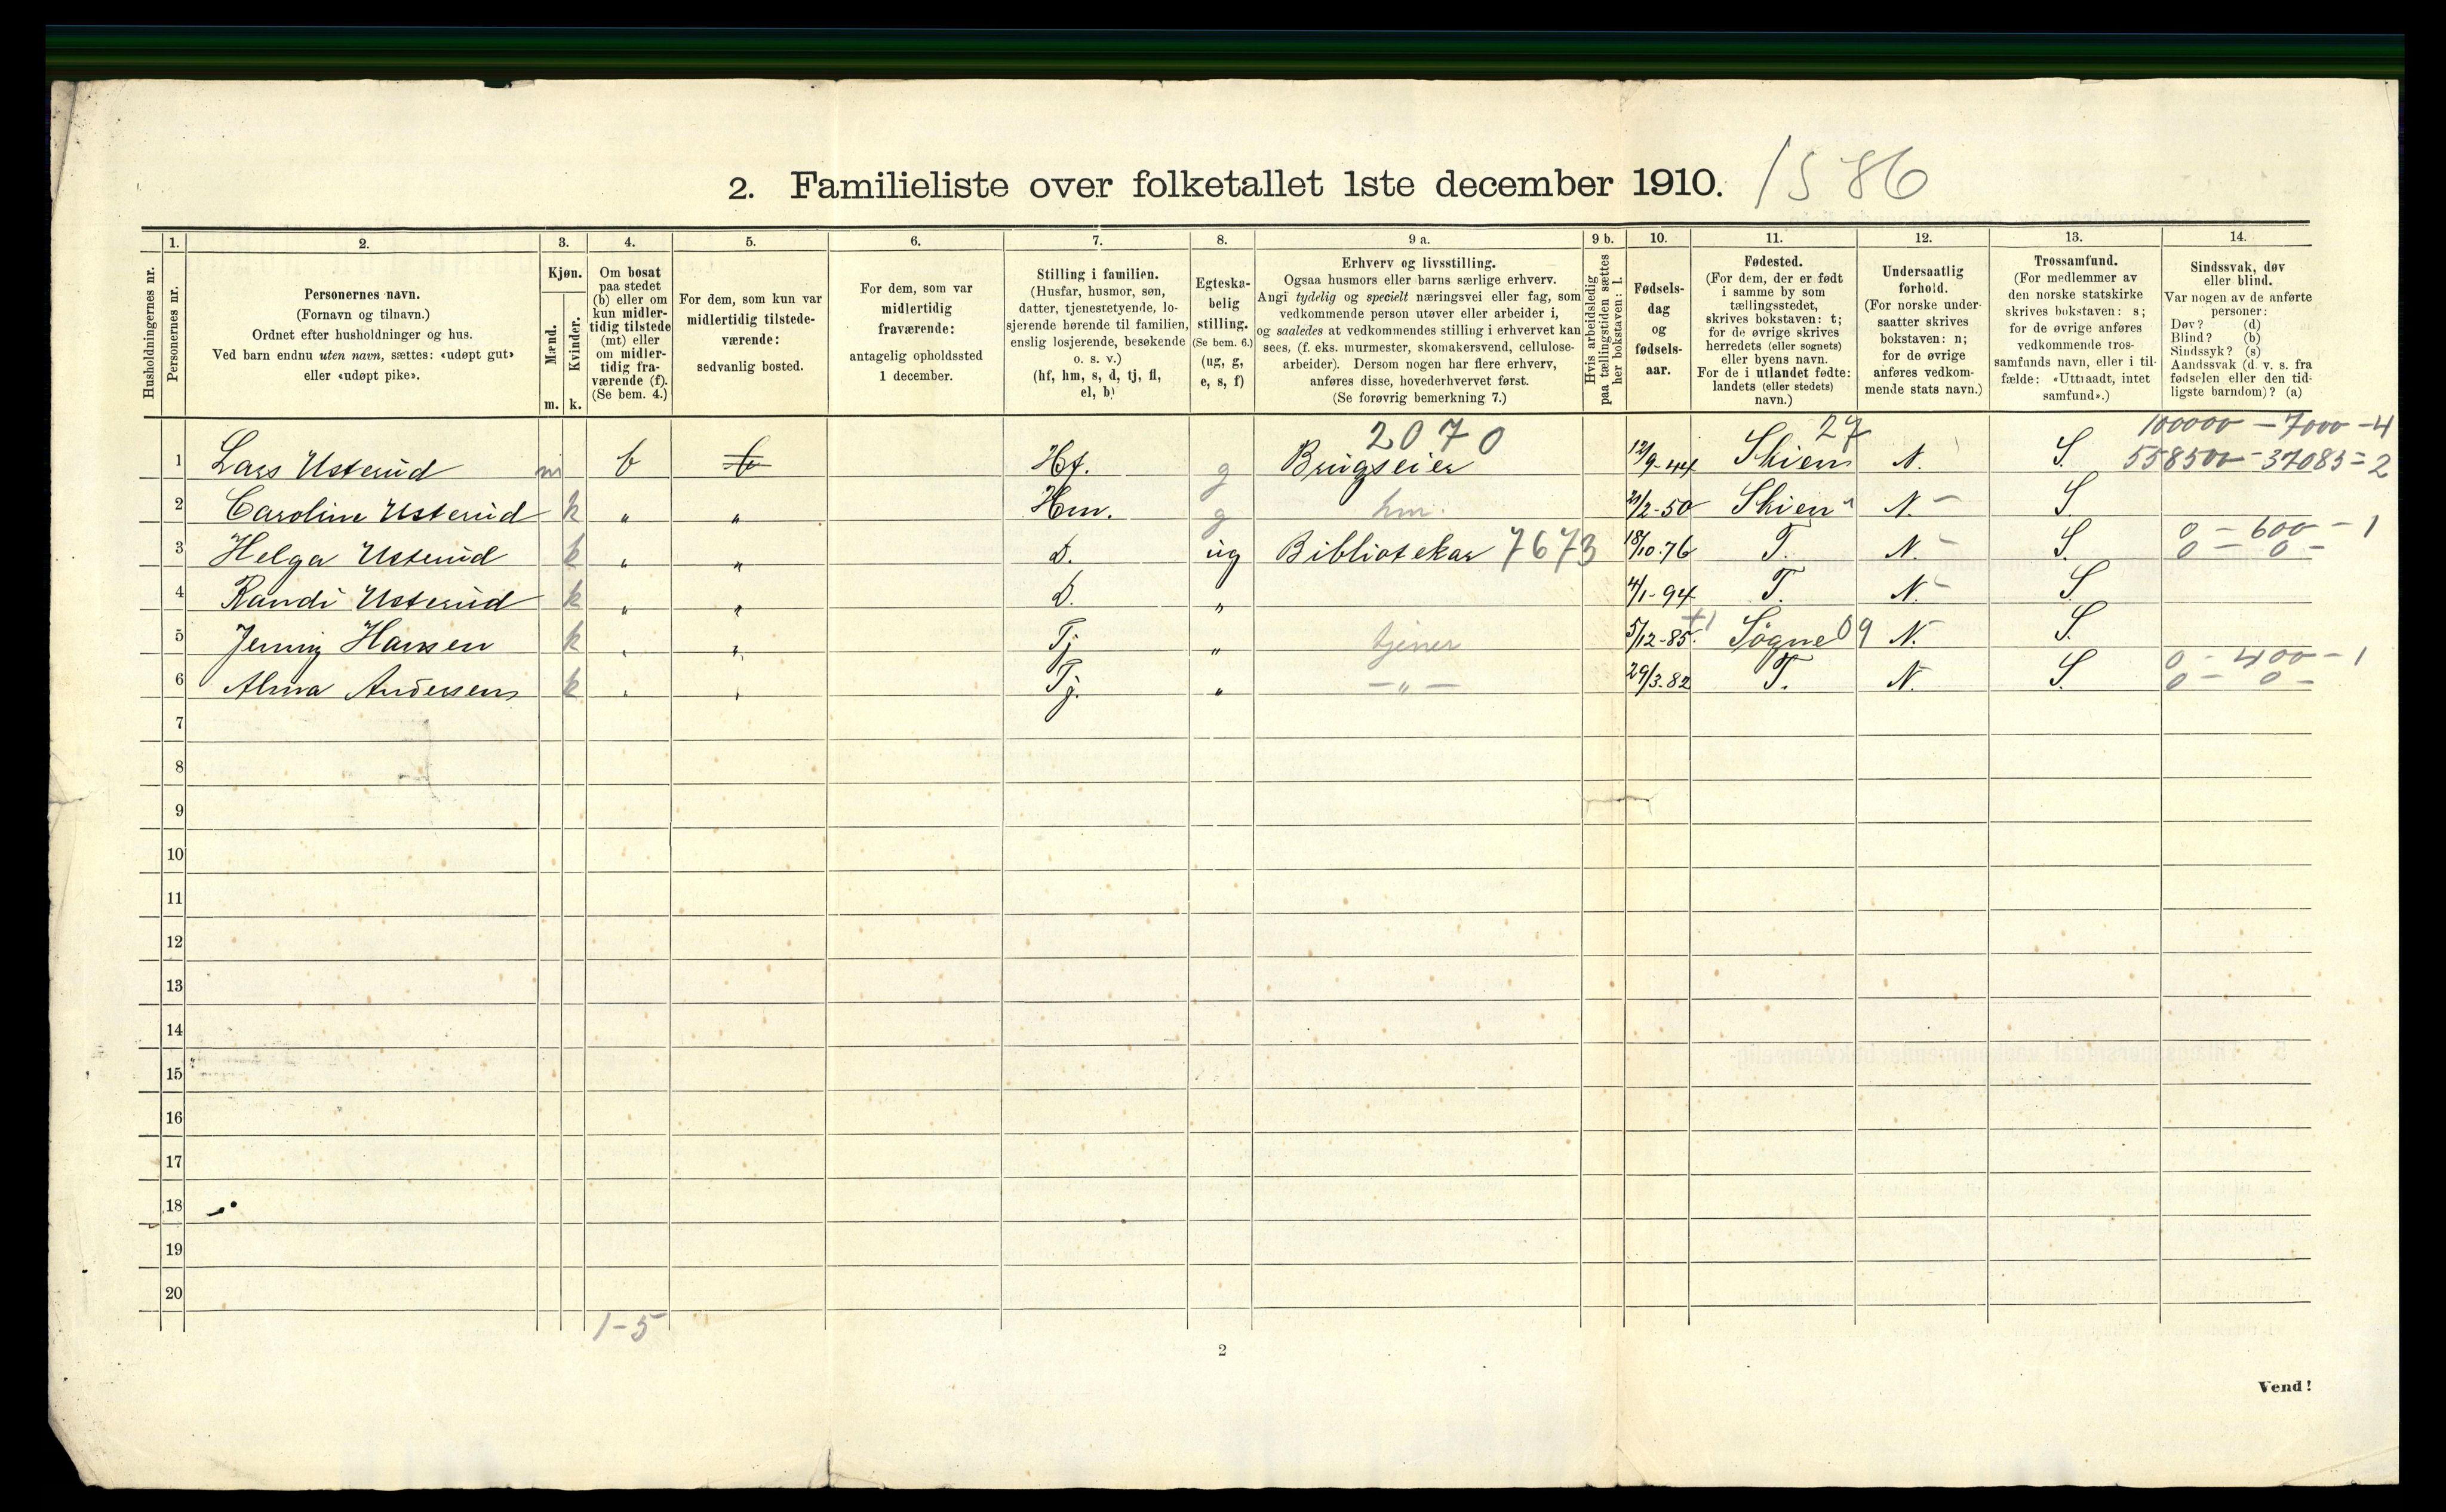 2. Familieliste over folketallet 1ste december 1910. 1586
Husholdningernes nr.
1. Personernes nr.
2. Personernes navn.
(Fornavn og tilnavn.)
Ordnet efter husholdninger og hus.
Ved barn endnu uten navn, sættes: «udøpt gut»
eller «udøpt pike».
3. Kjøn.
Mænd. m.
Kvinder. k.
4. Om bosat
paa stedet
(b) eller om
kun midler-
tidig tilstede
(mt) eller
om midler-
tidig fra-
værende (f).
(Se bem. 4.)
5. For dem, som kun var
midlertidig tilstede-
værende:
sedvanlig bosted.
6. For dem, som var
midlertidig
fraværende:
antagelig opholdssted
1 december.
7. Stilling i familien.
(Husfar, husmor, søn,
datter, tjenestetyende, lo-
sjerende hørende til familien,
enslig losjerende, besøkende
o. s. v.)
(hf, hm, s, d, tj, fl,
el, b)
8. Egteska-
belig
stilling.
(Se bem. 6.)
(ug, g,
e, s, f)
9 a. Erhverv og livsstilling.
Ogsaa husmors eller barns særlige erhverv.
Angi tydelig og specielt næringsvei eller fag, som
vedkommende person utøver eller arbeider i,
og saaledes at vedkommendes stilling i erhvervet kan
sees, (f. eks. murmester, skomakersvend, cellulose-
arbeider). Dersom nogen har flere erhverv,
anføres disse, hovederhvervet først.
(Se forøvrig bemerkning 7.)
9 b. Hvis arbeidsledig
paa tællingstiden sættes
her bokstaven: l.
10. Fødsels-
dag
og
fødsels-
aar.
11. Fødested.
(For dem, der er født
i samme by som
tællingsstedet,
skrives bokstaven: t;
for de øvrige skrives
herredets (eller sognets)
eller byens navn.
For de i utlandet fødte:
landets (eller stedets)
navn.)
12. Undersaatlig
forhold.
(For norske under-
saatter skrives
bokstaven: n;
for de øvrige
anføres vedkom-
mende stats navn.)
13. Trossamfund.
(For medlemmer av
den norske statskirke
skrives bokstaven: s;
for de øvrige anføres
vedkommende tros-
samfunds navn, eller i til-
fælde: «Uttraadt, intet
samfund».)
14. Sindssvak, døv
eller blind.
Var nogen av de anførte
personer:
Døv? (d)
Blind? (b)
Sindssyk? (s)
Aandssvak (d. v. s. fra
fødselen eller den tid-
ligste barndom)? (a)
2070 27 100000 - 7000 - 4
1 Lars Usterud m b b Hf. g Brugseier 12/9-44 Skien N. S. 558500 - 37085 = 2
2 Caroline Usterud k " " Hm. g hm. 21/2-50 Skien " N. - S
0 - 600 - 1
3 Helga Usterud k " " D. ug Bibliotekar 7673 18/10.76 T. N. - S. 0 - 0 -
4 Randi Usterud k " " D. " 4/1-94 T. N. - S
5 Jenny Hansen k " " Tj " tjener 5/12-85. +1 Søgne 09 N. S.
0 - 400 - 1
6 Alma Andersen k " " Tj. " - " - 29/3-82 T. N. S. 0 - 0 -
7
8
9
10
11
12
13
14
15
16
17
18
19
20
1-5
2
Vend!